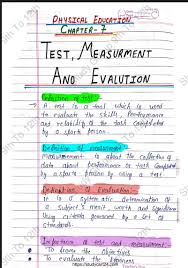 PHYSICAL EDUCATION
CHAPTER-7
TEST, MEASURMENT
AND EVALUTION
Definition of test:
A test is a tool which is used
to evaluate the skills, performance
and reliability of the task completed
by a sports person.
Definition of measurement:
Measurement is about the collection of
data about performance or task completed
by a sports person by using a test
Definition of Evaluation:
It is a systematic determination of
a subject's merit, worth and significance
Using criteria governed by a set of
standards.
Importance of test and measurement:
To know the objectives
To evaluate the